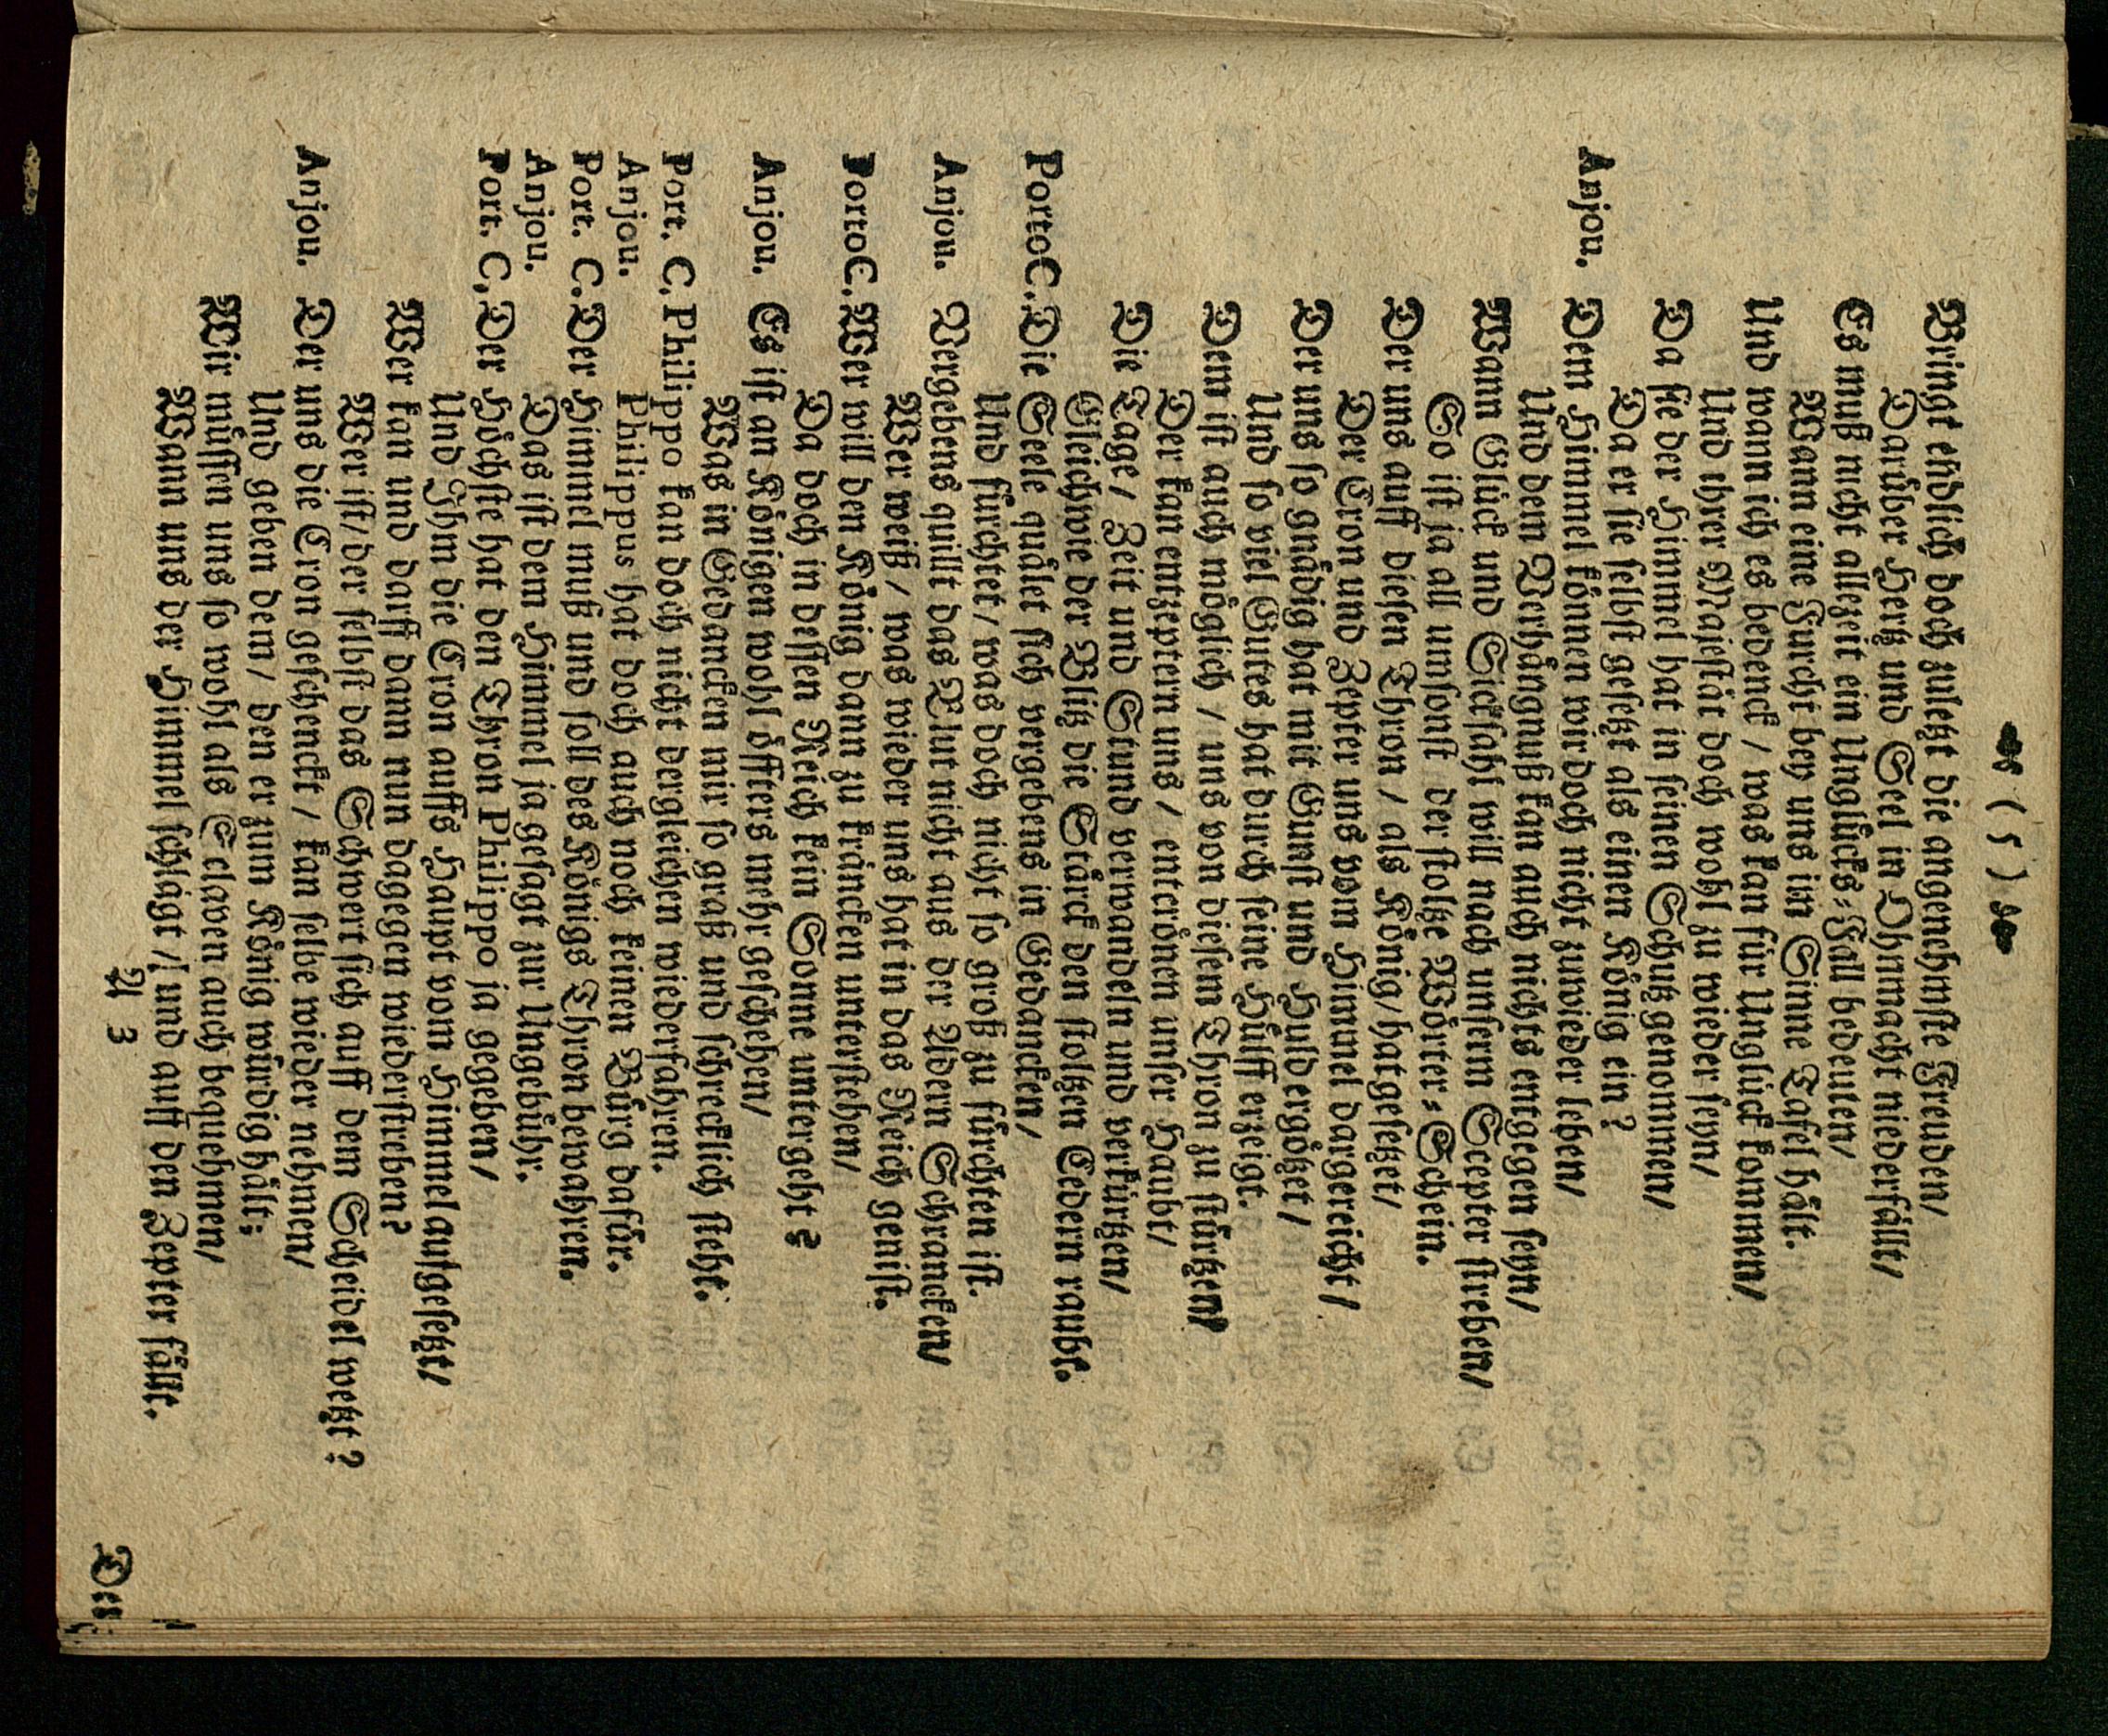 ( 5 )
Bringt endlich doch zuletzt die angenehmste Freuden/
Darüber Hertz und Seel in Ohnmacht niederfällt/
Es muß nicht allezeit ein Unglücks-Fall bedeuten/
Wann eine Furcht bey uns im Sinne Tafel hält.
Und wann ich es bedenck / was kan für Unglück kommen/
Und ihrer Majestät doch wohl zu wieder seyn/
Da sie der Himmel hat in seinen Schutz genommen/
Da er sie selbst gesetzt als einen König ein?
Anjou. Dem Himmel können wir doch nicht zuwieder leben/
Und dem Verhängnuß kan auch nichts entgegen seyn/
Wann Glück und Sicksahl will nach unserm Scepter streben/
So ist ja all umsonst der stoltze Wörter-Schein.
Der uns auff diesen Thron / als König/ hat gesetzet/
Der Cron und Zepter uns vom Himmel dargereicht /
Der uns so gnädig hat mit Gunst und Huld ergötzet /
Und so viel Gutes hat durch seine Hülff erzeigt.
Dem ist auch möglich / uns von diesem Thron zu stürtzen/
Der kan entzeptern uns / entcrönen unser Haubt/
Die Tage / Zeit und Stund verwandeln und verkürtzen/
Gleichwie der Blitz die Stärck den stoltzen Cedern raubt.
PortoC. Die Seele quälet sich vergebens in Gedancken/
Und fürchtet/ was doch nicht so groß zu fürchten ist.
Anjou. Vergebens quillt das Blut nicht aus der Adern Schrancken/
Wer weiß / was wieder uns hat in das Reich genist.
PortoC. Wer will den König dann zu kräncken unterstehen/
Da doch in dessen Reich kein Sonne untergeht?
Anjou. Es ist an Königen wohl öffters mehr geschehen/
Was in Gedancken mir so graß und schrecklich steht.
Port. C. Philippo kan doch nicht dergleichen wiederfahren.
Anjou. Philippus hat doch auch noch keinen Bürg dafür.
Port. C. Der Himmel muß und soll des Königs Thron bewahren.
Anjou. Das ist dem Himmel ja gesagt zur Ungebühr.
Port. C. Der Höchste hat den Thron Philippo ja gegeben/
Und Ihm die Cron auffs Haupt von Himmel aufgesetzt/
Wer kan und darff dann nun dagegen wiederstreben?
Wer ist/ der selbst das Schwert sich auff dem Scheidel wetzt?
Anjou. Der uns die Cron geschenckt / kan selbe wieder nehmen/
Und geben dem/ den er zum König würdig hält;
Wir müssen uns so wohl als Sclaven auch bequehmen/
Wann uns der Himmel schlägt / und auff den Zepter fällt.
A 3
Der